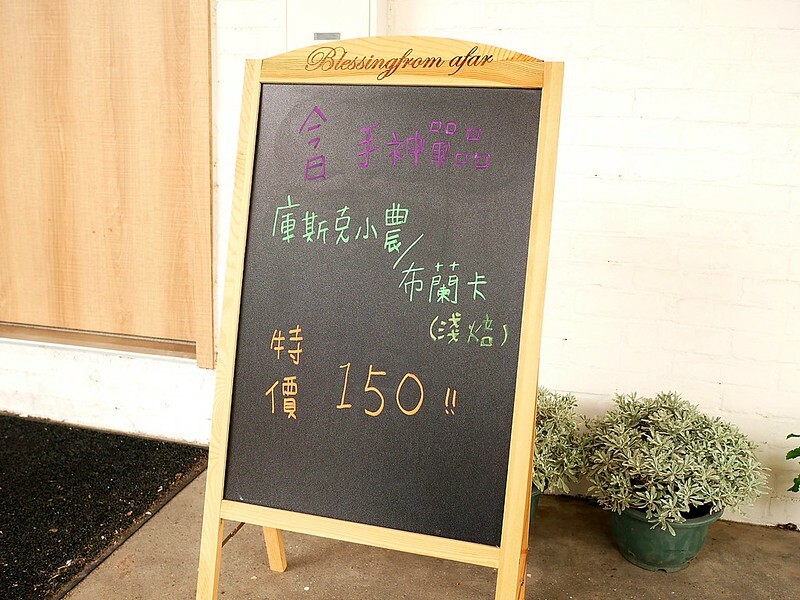 Blessingfrom afar
今日 手神單品
庫斯克小農/
布蘭卡
(淺焙)
特價 150!!